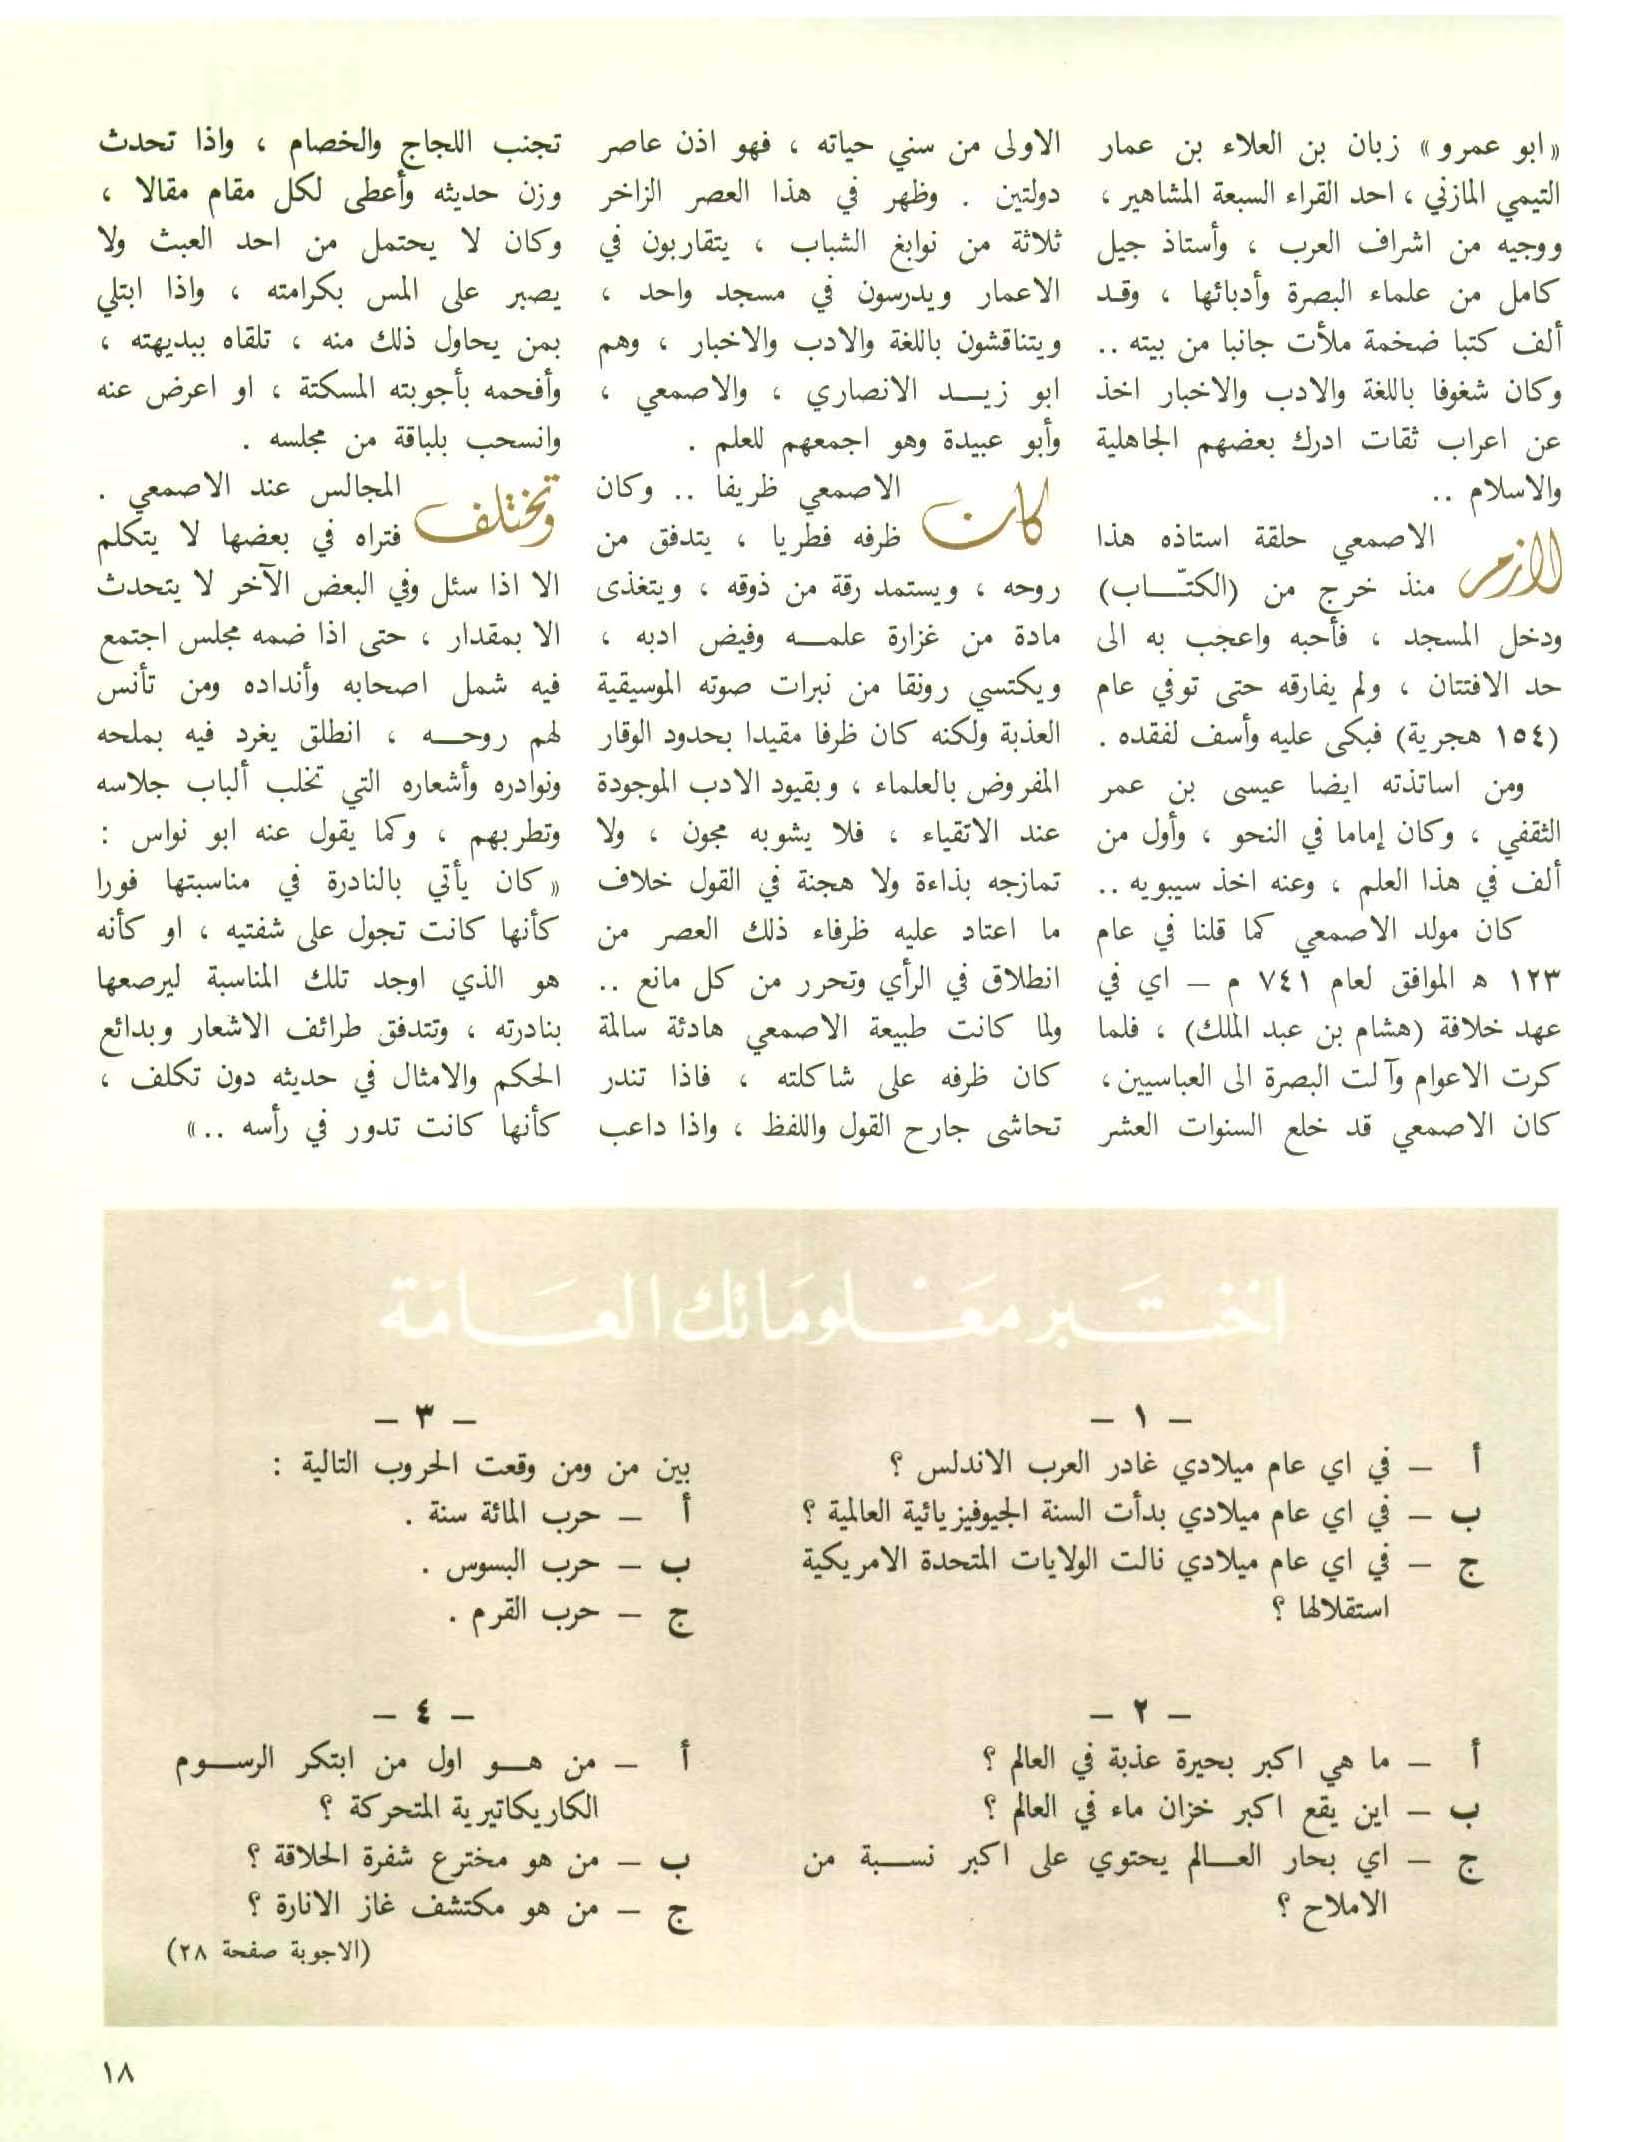 «ابو عمرو» زبان بن العلاء بن عمار
التيمي المازني ، احد القراء السبعة المشاهير ،
ووجيه من اشراف العرب ، وأستاذ جيل
كامل من علماء البصرة وأدبائها ، وقد
ألف كتبا ضخمة ملأت جانبا من بيته ..
وكان شغوفا باللغة والادب والاخبار اخذ
عن اعراب ثقات ادرك بعضهم الجاهلية
والاسلام ..
لازم الاصمعي حلقة استاذه هذا
منذ خرج من (الكتّاب)
ودخل المسجد ، فأحبه واعجب به الى
حد الافتتان ، ولم يفارقه حتى توفي عام
(١٥٤ هجرية) فبكى عليه وأسف لفقده .
ومن اساتذته ايضا عيسى بن عمر
الثقفي ، وكان إماما في النحو ، وأول من
ألف في هذا العلم ، وعنه اخذ سيبويه ..
كان مولد الاصمعي كما قلنا في عام
١٢٣ ه الموافق لعام ٧٤١ م – اي في
عهد خلافة (هشام بن عبد الملك) ، فلما
كرت الاعوام وآلت البصرة الى العباسيين ،
كان الاصمعي قد خلع السنوات العشر
الاولى من سني حياته ، فهو اذن عاصر
دولتين . وظهر في هذا العصر الزاخر
ثلاثة من نوابغ الشباب ، يتقاربون في
الاعمار ويدرسون في مسجد واحد ،
ويتناقشون باللغة والادب والاخبار ، وهم
ابو زيد الانصاري ، والاصمعي ،
وأبو عبيدة وهو اجمعهم للعلم .
كان الاصمعي ظريفا .. وكان
ظرفه فطريا ، يتدفق من
روحه ، ويستمد رقة من ذوقه ، ويتغذى
مادة من غزارة علمه وفيض ادبه ،
ويكتسي رونقا من نبرات صوته الموسيقية
العذبة ولكنه كان ظرفا مقيدا بحدود الوقار
المفروض بالعلماء ، وبقيود الادب الموجودة
عند الاتقياء ، فلا يشوبه مجون ، ولا
تمازجه بذاءة ولا هجنة في القول خلاف
ما اعتاد عليه ظرفاء ذلك العصر من
انطلاق في الرأي وتحرر من كل مانع ..
ولما كانت طبيعة الاصمعي هادئة سالمة
كان ظرفه على شاكلته ، فاذا تندر
تحاشى جارح القول واللفظ ، واذا داعب
تجنب اللجاج والخصام ، واذا تحدث
وزن حديثه وأعطى لكل مقام مقالا ،
وكان لا يحتمل من احد العبث ولا
يصبر على المس بكرامته ، واذا ابتلي
بمن يحاول ذلك منه ، تلقاه ببديهته ،
وأفحمه بأجوبته المسكتة ، او اعرض عنه
وانسحب بلباقة من مجلسه .
وتختلف المجالس عند الاصمعي .
فتراه في بعضها لا يتكلم
الا اذا سئل وفي البعض الآخر لا يتحدث
الا بمقدار ، حتى اذا ضمه مجلس اجتمع
فيه شمل اصحابه وأنداده ومن تأنس
لهم روحه ، انطلق يغرد فيه بملحه
ونوادره وأشعاره التي تخلب ألباب جلاسه
وتطربهم ، وكما يقول عنه ابو نواس :
« كان يأتي بالنادرة في مناسبتها فورا
كأنها كانت تجول على شفتيه ، او كأنه
هو الذي اوجد تلك المناسبة ليرصعها
بنادرته ، وتتدفق طرائف الاشعار وبدائع
الحكم والامثال في حديثه دون تكلف ،
كأنها كانت تدور في رأسه .. »
اخْتَبر مَعْلومَاتك العَامَة
– ١ –
أ – في اي عام ميلادي غادر العرب الاندلس ؟
ب – في اي عام ميلادي بدأت السنة الجيوفيزيائية العالمية ؟
ج – في اي عام ميلادي نالت الولايات المتحدة الامريكية
استقلالها ؟
– ٢ –
أ – ما هي اكبر بحيرة عذبة في العالم ؟
ب – اين يقع اكبر خزان ماء في العالم ؟
ج – اي بحار العالم يحتوي على اكبر نسبة من
الاملاح ؟
– ٣ –
بين من ومن وقعت الحروب التالية :
أ – حرب المائة سنة .
ب – حرب البسوس .
ج – حرب القرم .
– ٤ –
أ – من هو اول من ابتكر الرسوم
الكاريكاتيرية المتحركة ؟
ب – من هو مخترع شفرة الحلاقة ؟
ج – من هو مكتشف غاز الانارة ؟
(الاجوبة صفحة ٢٨)
١٨